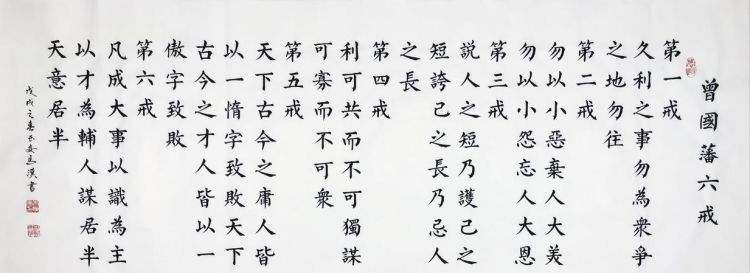 曾國藩六戒
第一戒
久利之事勿為衆爭
之地勿往
第二戒
勿以小惡棄人大美
勿以小怨忘人大恩
第三戒
説人之短乃護己之
短誇己之長乃忌人
之長
第四戒
利可共而不可獨謀
可寡而不可衆
第五戒
天下古今之庸人皆
以一惰字致敗天下
古今之才人皆以一
傲字致敗
第六戒
凡成大事以識為主
以才為輔人謀居半
天意居半
戊戌之春漢書